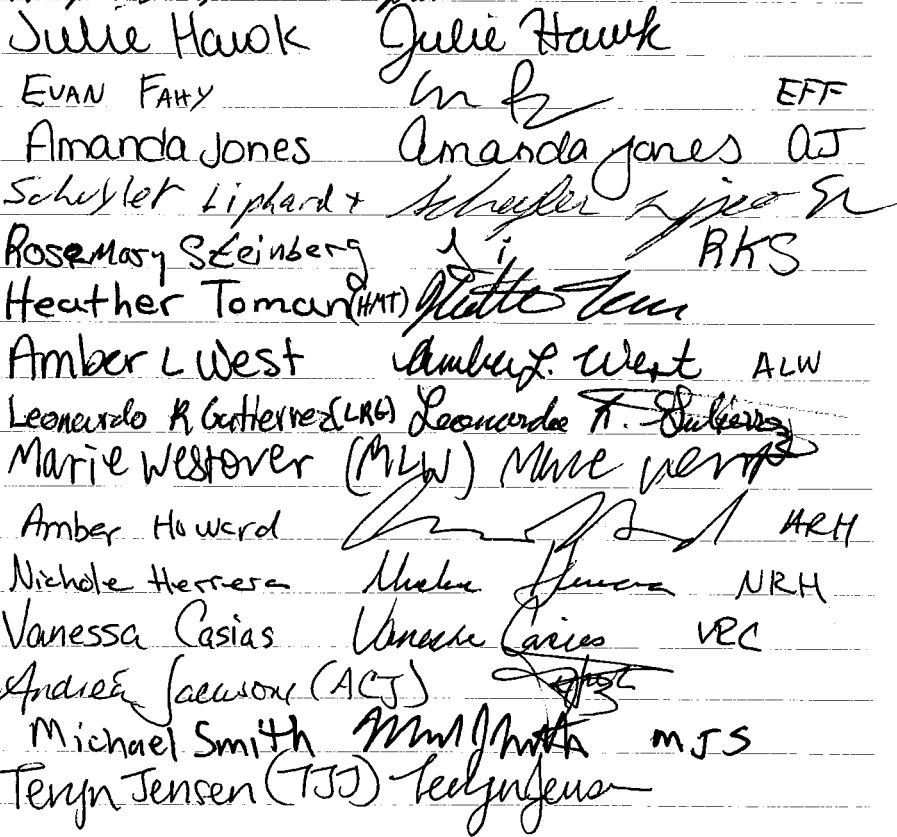 Julie Hawk Julie Hawk
EVAN FAHY EFF
Amanda Jones Amanda Jones AJ
Schuyler Liphardt Schuyler
Rosemary Steinberg RKS
Heather Toman (HMT)
Amber L West Amber L. West ALW
Leonardo R Gutierrez (LRG) Leonardo R. Gutierrez
Marie Westover (MLW) Marie
Amber Howard ARH
Nichole Herrera NRH
Vanessa Casias Vanessa Casias VRC
Andrea Jackson (ACJ)
Michael Smith MJS
Teryn Jensen (TJJ) Teryn Jensen